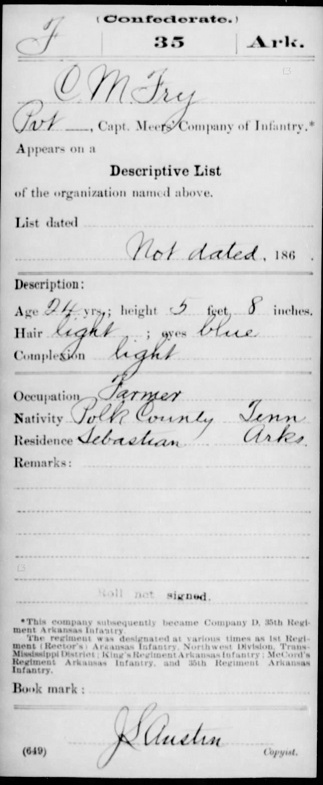 (Confederate.)
F 35 Ark.
C M Fry
Pvt, Capt. Meers' Company of Infantry.*
Appears on a
Descriptive List
of the organization named above.
List dated
Not dated, 186 .
Description:
Age 24 yrs.; height 5 feet 8 inches.
Hair light ; eyes blue
Complexion light
Occupation Farmer
Nativity Polk County Tenn
Residence Sebastian Arks.
Remarks:
Roll not signed.
*This company subsequently became Company D, 35th Regi-
ment Arkansas Infantry.
The regiment was designated at various times as 1st Regi-
ment (Rector's) Arkansas Infantry, Northwest Division, Trans-
Mississippi District; King's Regiment Arkansas Infantry; McCord's
Regiment Arkansas Infantry, and 35th Regiment Arkansas
Infantry.
Book mark:
J S Austin
(649) Copyist.